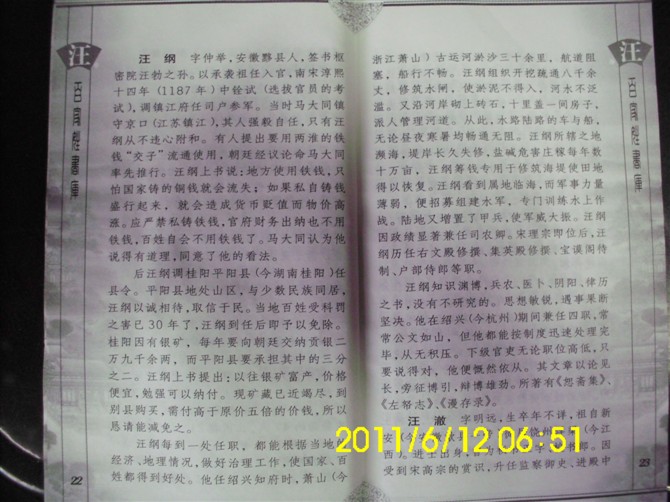 汪
汪 纲 字仲举,安徽黟县人,签书枢
密院汪勃之孙。以承袭祖任入官,南宋淳熙
十四年(1187年)中铨试(选拔官员的考
试),调镇江府任司户参军。当时马大同镇
守京口(江苏镇江),其人强毅自任,只有汪
纲从不违心附和。有人提出要用两淮的铁
钱“交子”流通使用,朝廷经议论命马大同
率先推行。汪纲上书说:地方使用铁钱,只
怕国家铸的铜钱就会流失;如果私自铸钱
盛行起来,就会造成货币贬值而物价高
涨。应严禁私铸铁钱,官府财务出纳也不用
铁钱,百姓自会不用铁钱了。马大同认为他
说得有道理,同意了他的看法。
后汪纲调桂阳平阳县(今湖南桂阳)任
县令。平阳县地处山区,与少数民族同居,
汪纲以诚相待,取信于民。当地百姓受科罚
之害已30年了,汪纲到任后即予以免除。
桂阳因有银矿,每年要向朝廷交纳贡银二
万九千余两,而平阳县要承担其中的三分
之二。汪纲上书提出:以往银矿富产,价格
便宜,勉强可以纳付。现矿藏已近竭尽,到
别县购买,需付高于原价五倍的价钱,所以
恳请能减免之。
汪纲每到一处任职,都能根据当地
经济、地理情况,做好治理工作,使国家、百
姓都得到好处。他任绍兴知府时,萧山(今
22
浙江萧山)古运河淤沙三十余里,航道阻
塞,船行不畅。汪纲组织开挖疏通八千余
丈,修筑水闸,使淤泥不得入,河水不泛
滥。又沿河岸砌上砖石,十里盖一间房子,
派人管理河道。从此,水路陆路的车与船,
无论昼夜寒暑均畅通无阻。汪纲所辖之地
濒海,堤岸长久失修,盐碱危害庄稼每年数
十万亩,汪纲筹钱专用于修筑海堤使田地
得以恢复。汪纲看到属地临海,而军事力量
薄弱,便招募组建水军,专门训练水上作
战。陆地又增置了甲兵,使军威大振。汪纲
因政绩显著兼任司农卿。宋理宗即位后,汪
纲历任右文殿修撰、集英殿修撰、宝谟阁待
制、户部侍郎等职。
汪纲知识渊博,兵农、医卜、阴阳、律历
之书,没有不研究的。思想敏锐,遇事果断
坚决。他在绍兴(今杭州)期间兼任四职,常
常公文如山,但他都能按制度迅速处理完
毕,从无积压。下级官吏无论职位高低,只
要说得对,他便慨然依从。其文章以论见
长,旁征博引,辩博雄劲。所著有《恕斋集》、
《左帑志》、《漫存录》。
汪 澈 字明远,生卒年不详,祖自新
受到宋高宗的赏识,升任监察御史、进殿中
汪
23
2011/6/12 06:51